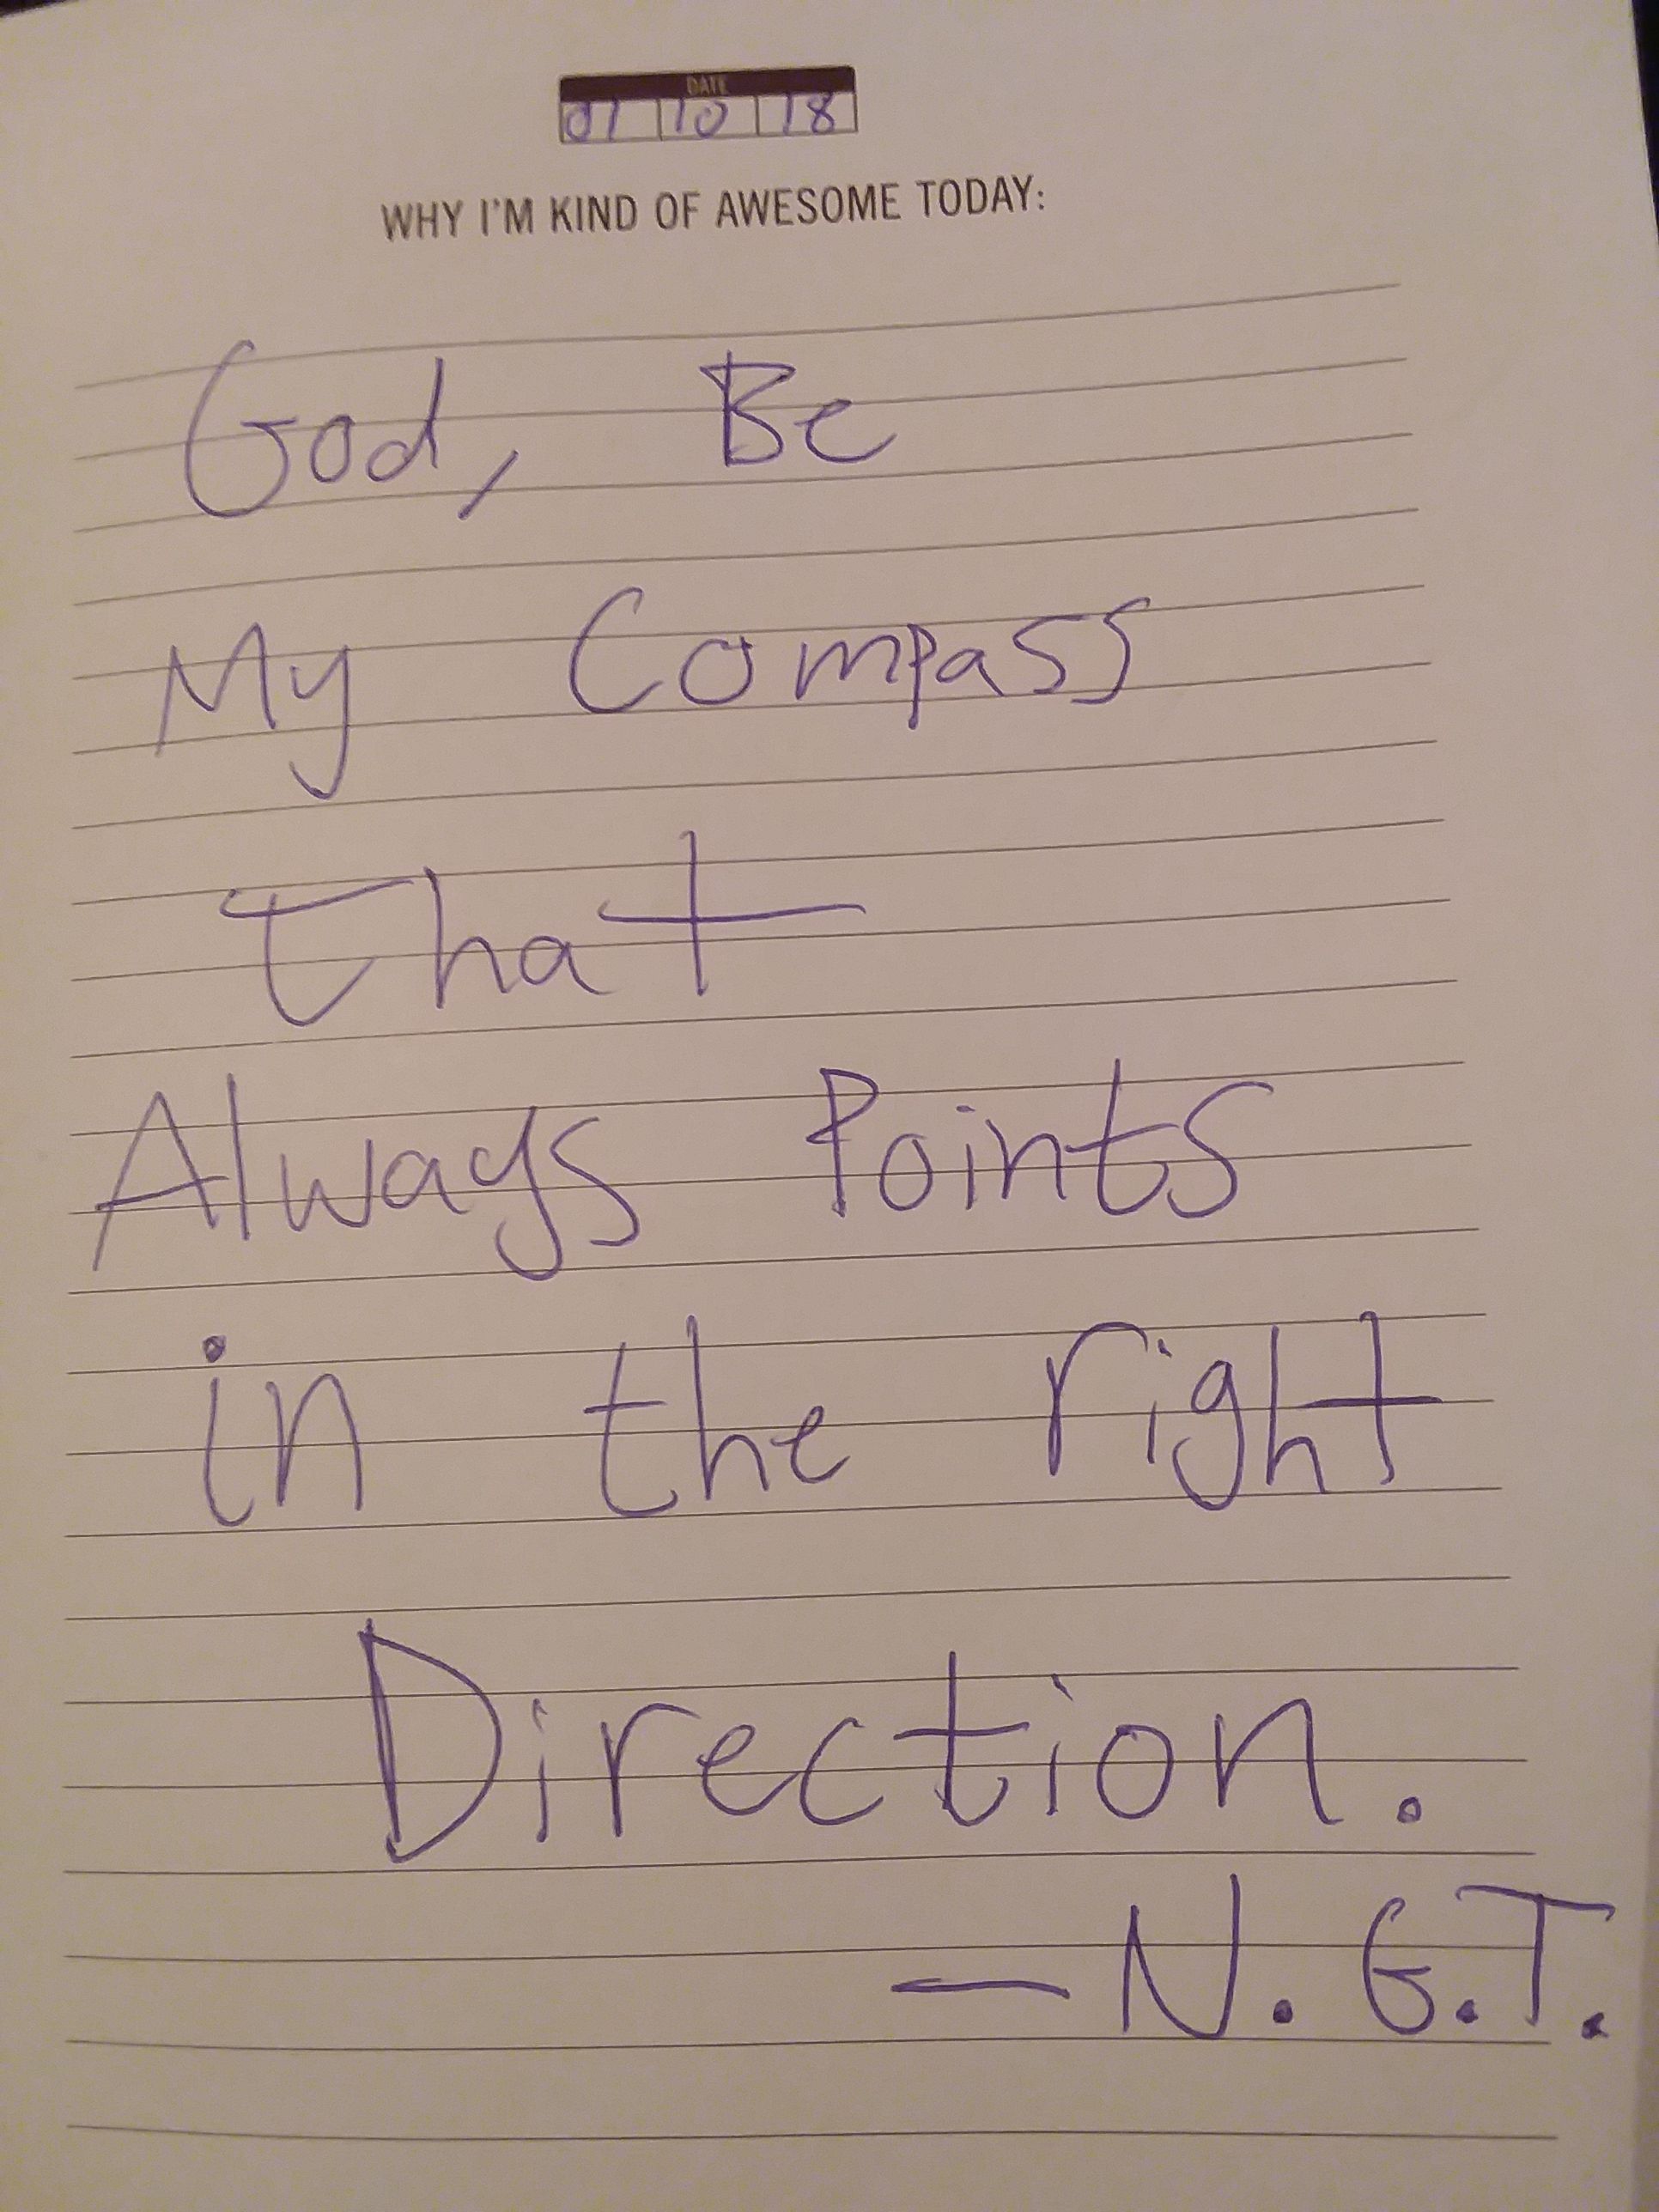 DATE
01 10 18
WHY I'M KIND OF AWESOME TODAY:
God, Be
My Compass
that
Always Points
in the right
Direction.
— N. G. T.